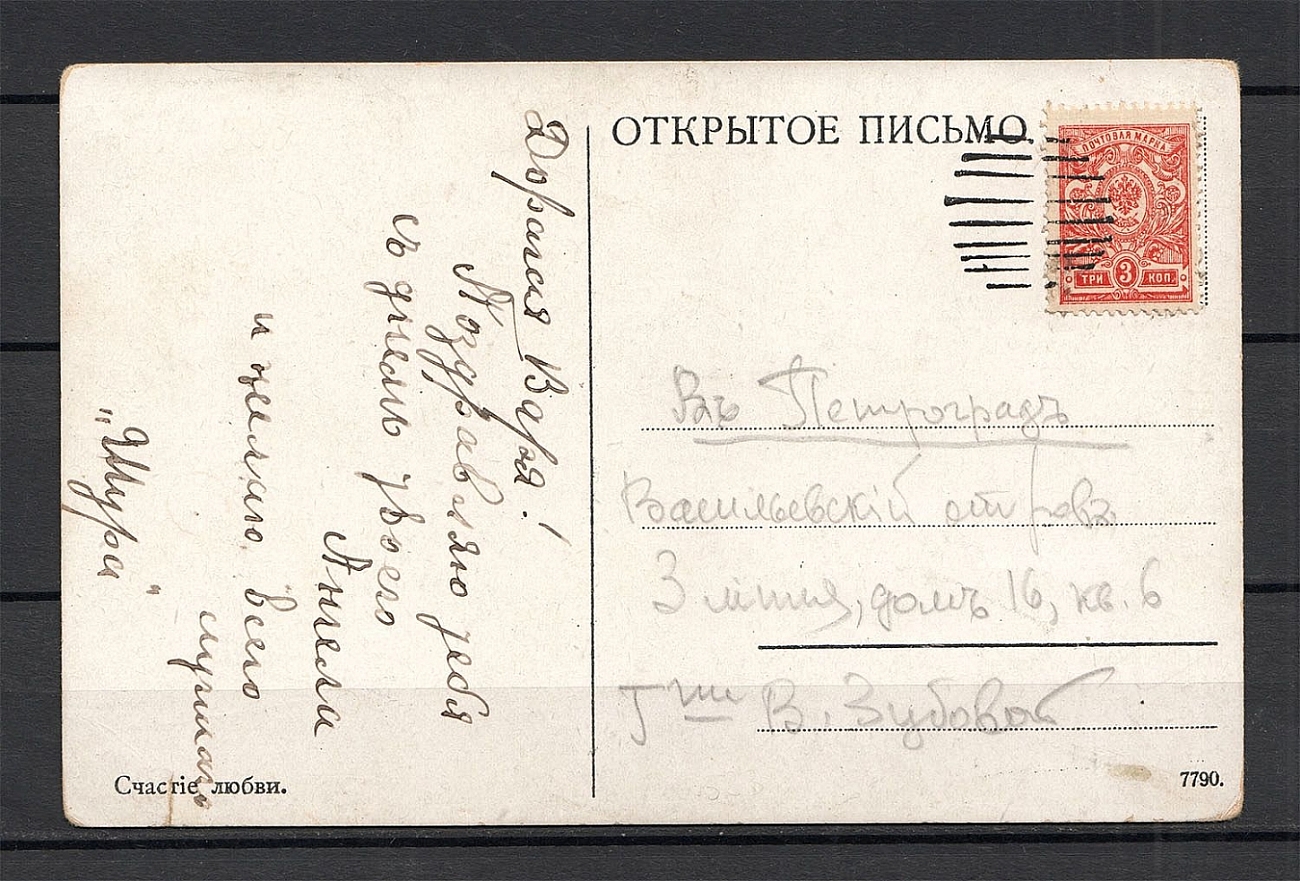 Дорогая Варя!
Поздравляю тебя
съ днемъ твоего
Ангела
и желаю всего
лучшаго
"Шура"
ОТКРЫТОЕ ПИСЬМО
ПОЧТОВАЯ МАРКА
ТРИ 3 КОП.
Въ Петроградъ
Васильевскій островъ
3 линия, домъ 16, кв. 6
Гжѣ В. Зубовой
Счастіе любви.
7790.